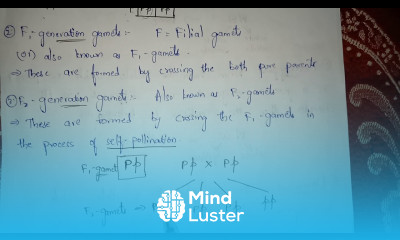 PP PP
② F1-generation gamets:- F = Filial gamets
(or) also known as F1-gamets.
⇒ These are formed by crossing the both pure parents
② F2-generation gamets:- Also known as F2-gamets
⇒ These are formed by crossing the F1-gamets in
the process of self-pollination
F1-gamets Pp Pp x Pp
F2-gamets ⇒ pp
Mind
Luster